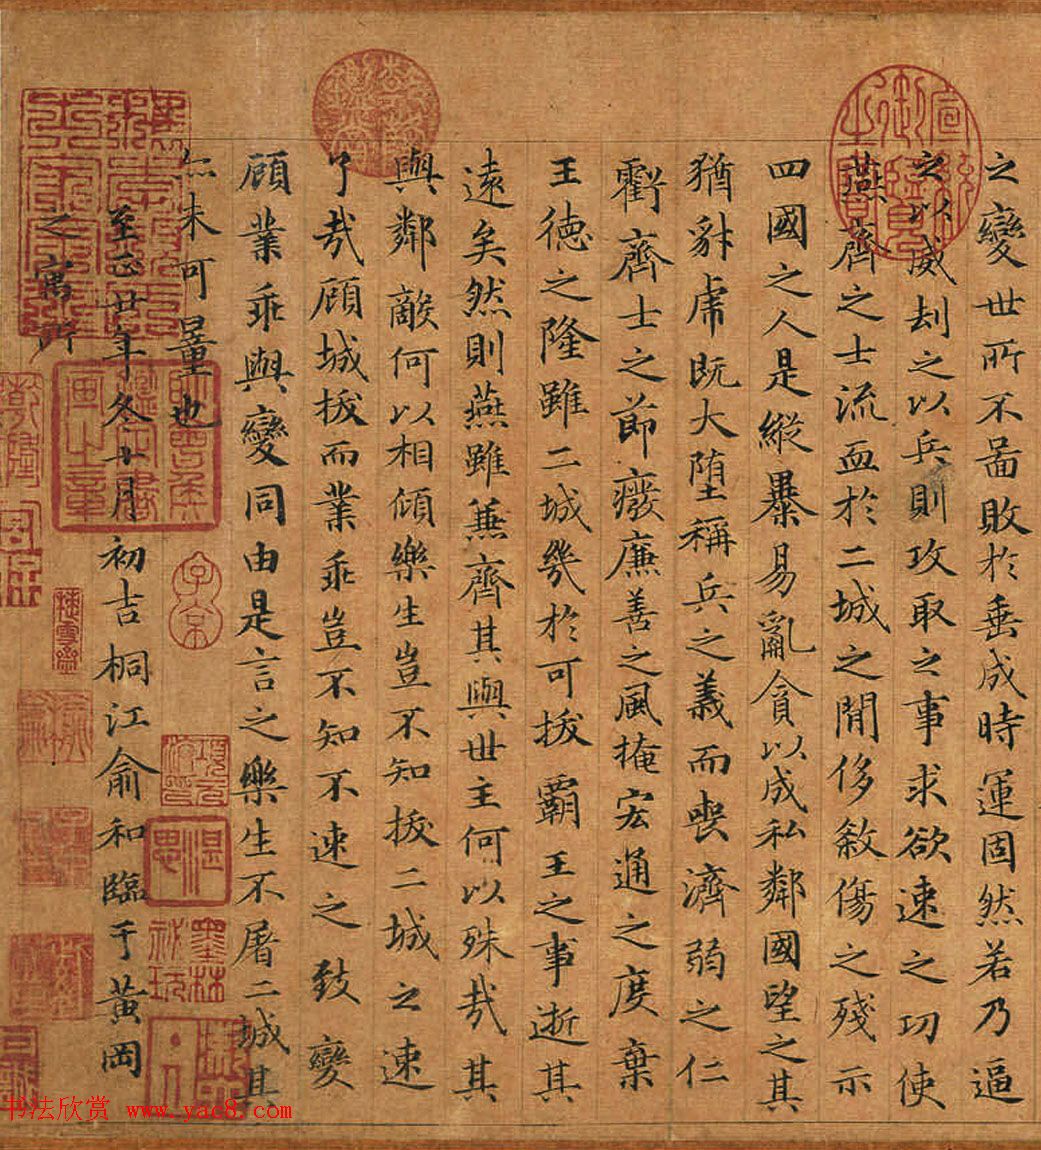 之變世所不啚敗於垂成時運固然若乃逼
之以威刧之以兵則攻取之事求欲速之功使
燕齊之士流血於二城之閒侈敘傷之殘示
四國之人是縱暴易亂貪以成私鄰國望之其
猶豺虎既大墮稱兵之義而喪濟弱之仁
虧齊士之節癈廉善之風掩宏通之度棄
王德之隆雖二城幾於可拔霸王之事逝其
遠矣然則燕雖兼齊其與世主何以殊哉其
與鄰敵何以相傾樂生豈不知拔二城之速
了哉顧城拔而業乖豈不知不速之致變
顧業乖與變同由是言之樂生不屠二城其
亦未可量也
至正廿年冬十月初吉桐江俞和臨于黃岡
之寓所
宣統御覽之寶
子京
墨林祕玩
书法欣赏 www.yac8.com